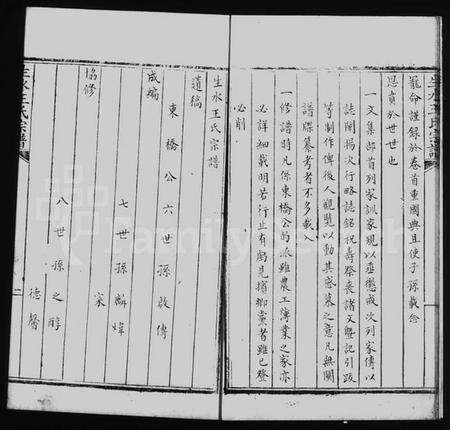 生水王氏宗譜
寵命謹録於卷首重國典且使子孫載念
恩賁於世世也
一文集部首列家訓家規以垂懲戒次列家傳以
誌闡揚次行略誌銘祝壽祭喪諸文暨記引跋
等制作俾後人觀覽以動其感慕之意凡無關
譜牒纂考者不多載
一修譜時凡係東橋公的派雖農工薄業之家亦
必詳細載明若行止有虧見擯鄉黨者雖已登
必削
生水王氏宗譜
遺稿
東橋公六世孫啟傳
成編
七世孫麟煒
家
協修
八世孫之醇
德馨
生水王氏宗譜
二
FamilySearch